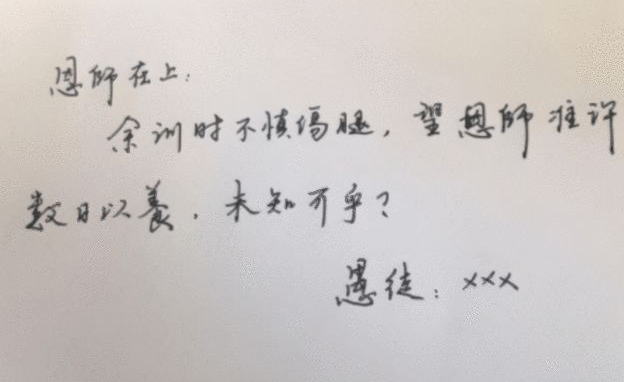 恩师在上：
余训时不慎伤腿，望恩师准许
数日以養，未知可乎？
愚徒：×××